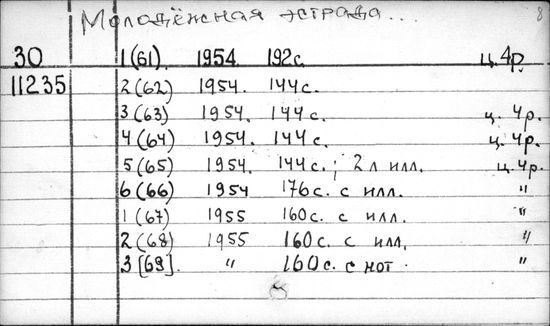 Молодёжная эстрада... 8
30 1(61). 1954. 192с. ц.4р.
11235 2(62) 1954. 144с.
3(63) 1954. 144с. ц. 4р.
4(64) 1954. 144с. ц. 4р.
5(65) 1954. 144с.; 2л илл. ц. 4р.
6(66) 1954 176с. с илл. "
1(67) 1955 160с. с илл. "
2(68) 1955 160с. с илл. "
3[69]. " 160с. с нот. "